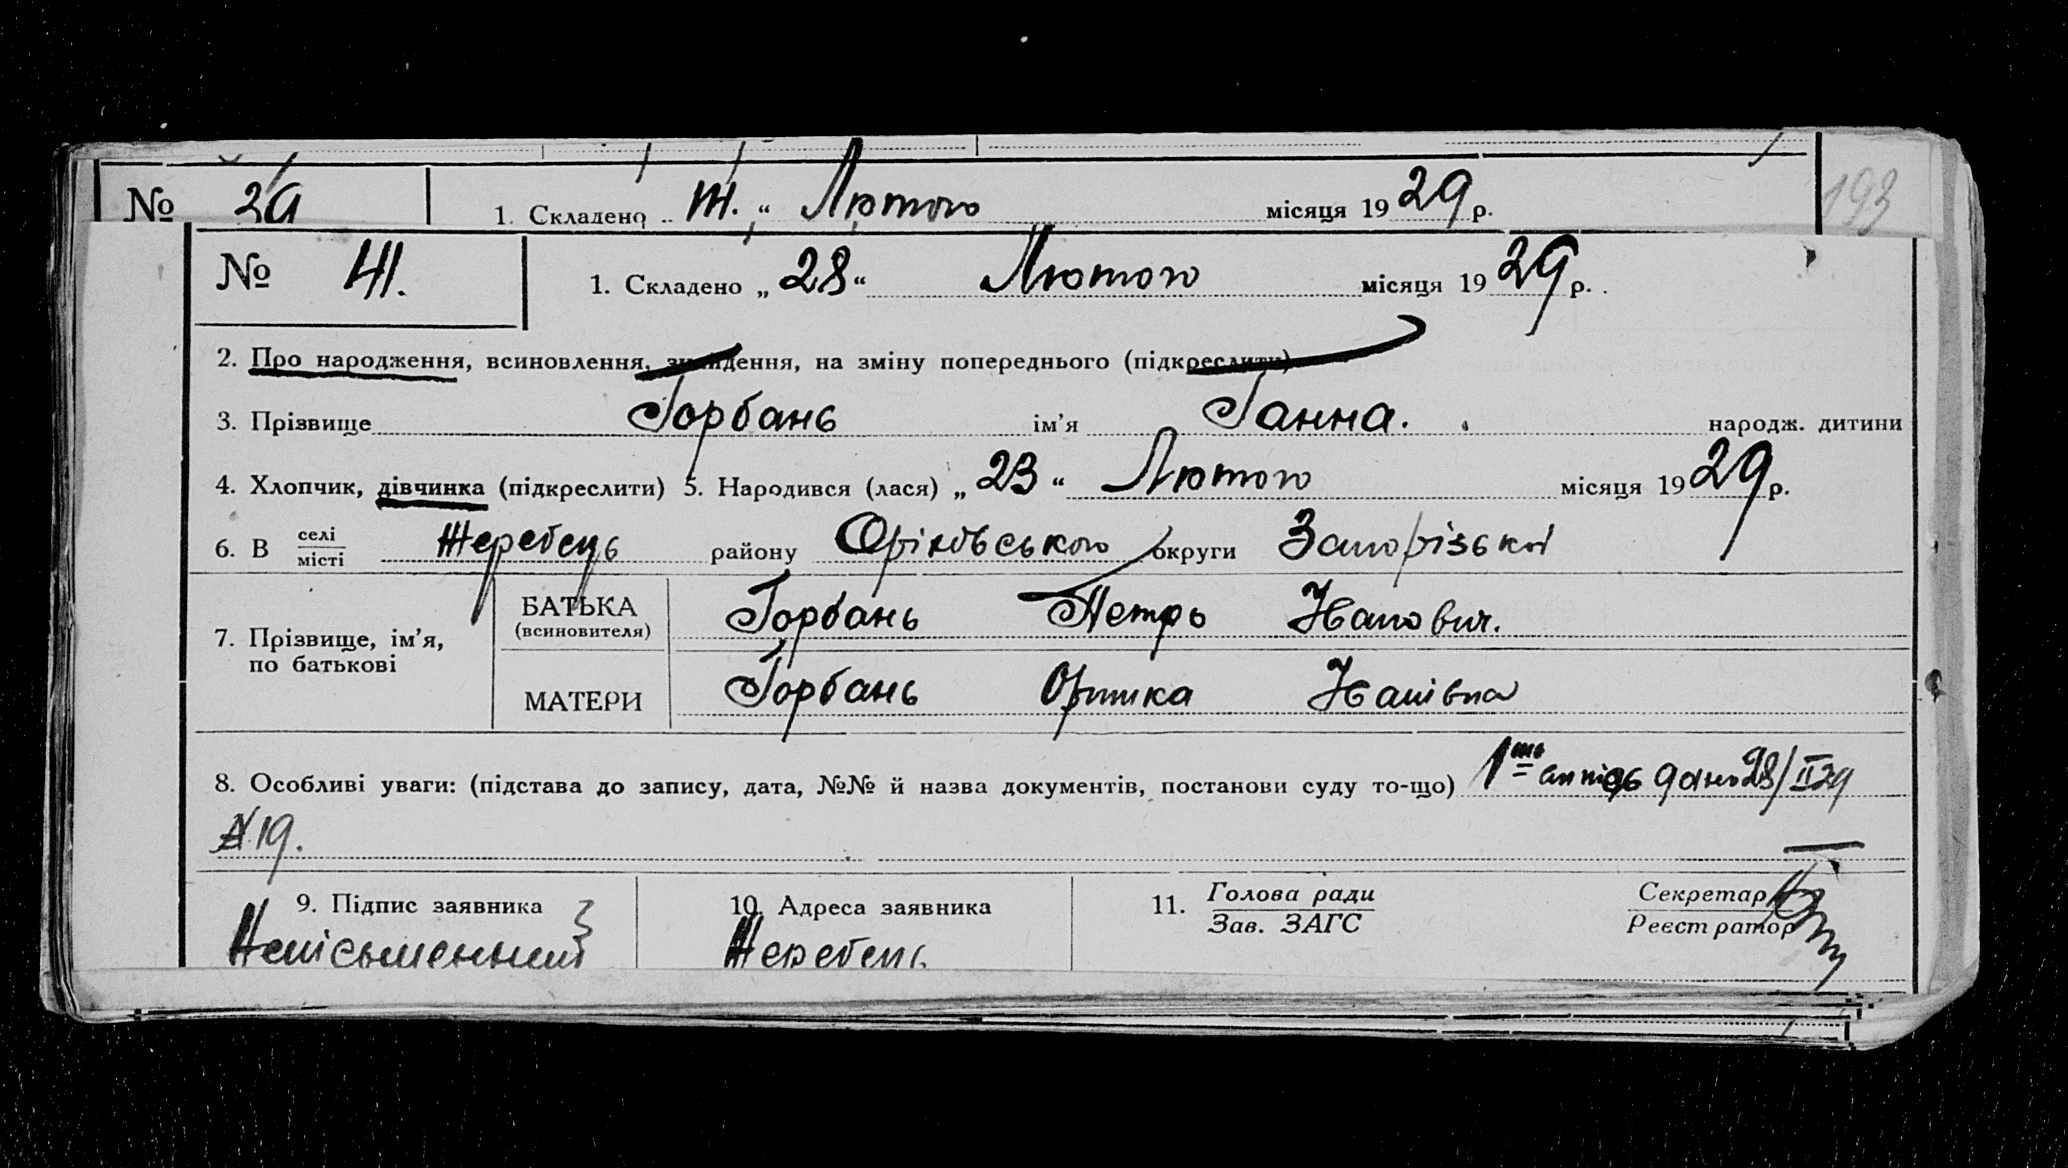 № 29 1. Складено „ " Лютого місяця 1929 р. 193
№ 41. 1. Складено „28" Лютого місяця 1929 р.
2. Про народження, всиновлення, знайдення, на зміну попереднього (підкреслити)
3. Прізвище Горбань ім'я Ганна. народж. дитини
4. Хлопчик, дівчинка (підкреслити) 5. Народився (лася) „23" Лютого місяця 1929 р.
6. В селі/місті Жеребець району Оріхівського округи Запорізької
7. Прізвище, ім'я, по батькові
БАТЬКА (всиновителя) Горбань Петро
МАТЕРИ Горбань Оришка
8. Особливі уваги: (підстава до запису, дата, №№ й назва документів, постанови суду то-що) 28/II 29
№ 19.
9. Підпис заявника 10. Адреса заявника 11. Голова ради / Зав. ЗАГС Секретар / Реєстратор
Неписьменний Жеребець